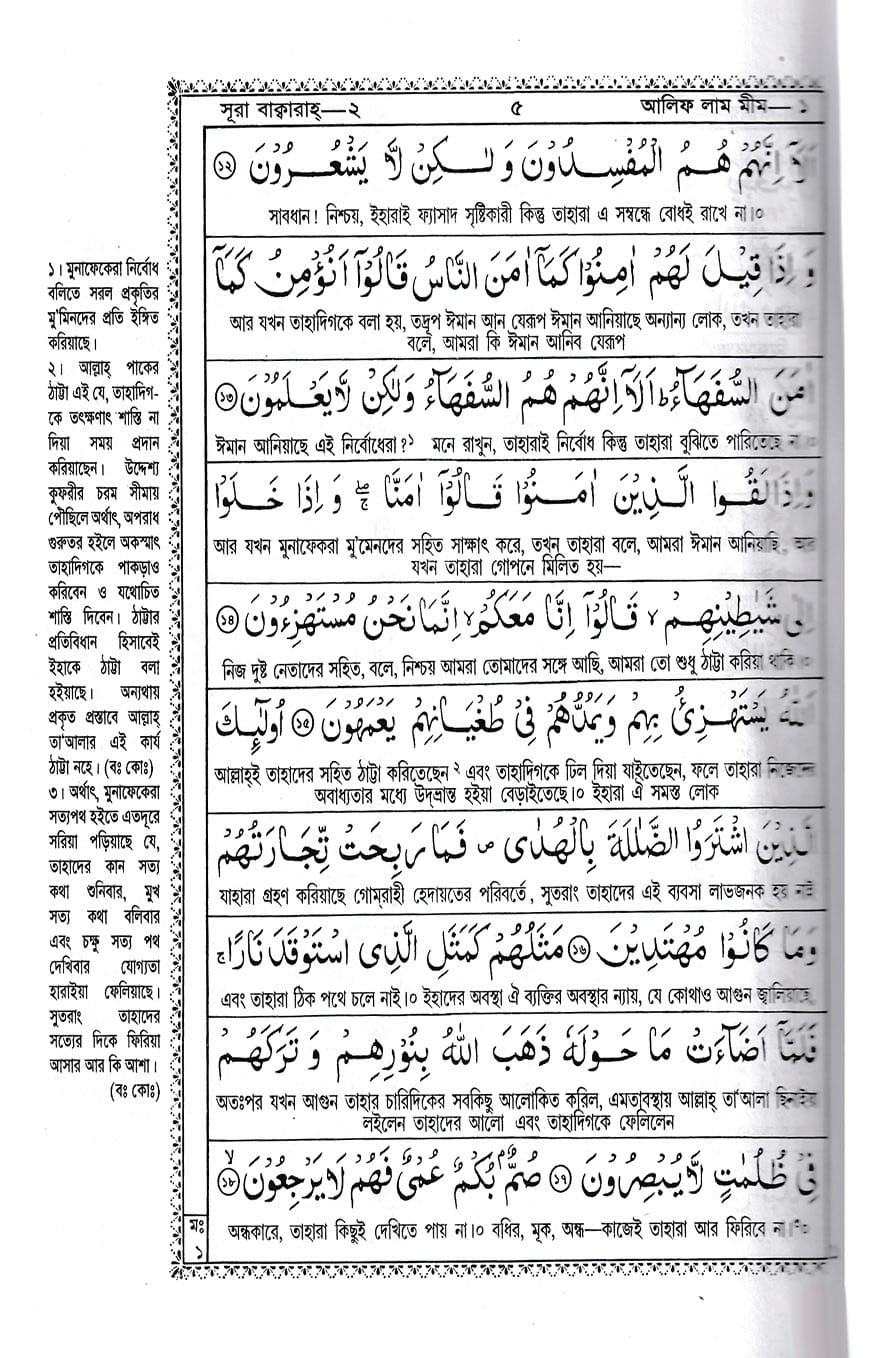 সূরা বাক্বারাহ্—২ ৫ আলিফ লাম মীম— ১
اَلَاۤ اِنَّهُمْ هُمُ الْمُفْسِدُوْنَ وَلٰكِنْ لَّا يَشْعُرُوْنَ ۝১২
সাবধান! নিশ্চয়, ইহারাই ফ্যাসাদ সৃষ্টিকারী কিন্তু তাহারা এ সম্বন্ধে বোধই রাখে না।০
وَ اِذَا قِيْلَ لَهُمْ اٰمِنُوْا كَمَاۤ اٰمَنَ النَّاسُ قَالُوْۤا اَنُؤْمِنُ كَمَاۤ
আর যখন তাহাদিগকে বলা হয়, তদ্রূপ ঈমান আন যেরূপ ঈমান আনিয়াছে অন্যান্য লোক, তখন তাহারা
বলে, আমরা কি ঈমান আনিব যেরূপ
اٰمَنَ السُّفَهَآءُ ؕ اَلَاۤ اِنَّهُمْ هُمُ السُّفَهَآءُ وَلٰكِنْ لَّا يَعْلَمُوْنَ ۝১৩
ঈমান আনিয়াছে এই নির্বোধেরা?১ মনে রাখুন, তাহারাই নির্বোধ কিন্তু তাহারা বুঝিতে পারিতেছে না।০
وَاِذَا لَقُوا الَّذِيْنَ اٰمَنُوْا قَالُوْۤا اٰمَنَّا ۖۚ وَ اِذَا خَلَوْا
আর যখন মুনাফেকরা মু'মেনদের সহিত সাক্ষাৎ করে, তখন তাহারা বলে, আমরা ঈমান আনিয়াছি, আর
যখন তাহারা গোপনে মিলিত হয়—
اِلٰى شَيٰطِيْنِهِمْ ۙ قَالُوْۤا اِنَّا مَعَكُمْ ۙ اِنَّمَا نَحْنُ مُسْتَهْزِءُوْنَ ۝১৪
নিজ দুষ্ট নেতাদের সহিত, বলে, নিশ্চয় আমরা তোমাদের সঙ্গে আছি, আমরা তো শুধু ঠাট্টা করিয়া থাকি।০
اَللّٰهُ يَسْتَهْزِئُ بِهِمْ وَيَمُدُّهُمْ فِىْ طُغْيَانِهِمْ يَعْمَهُوْنَ ۝১৫ اُولٰٓئِكَ
আল্লাহ্‌ই তাহাদের সহিত ঠাট্টা করিতেছেন ২ এবং তাহাদিগকে ঢিল দিয়া যাইতেছেন, ফলে তাহারা নিজেদের
অবাধ্যতার মধ্যে উদ্‌ভ্রান্ত হইয়া বেড়াইতেছে।০ ইহারা ঐ সমস্ত লোক
الَّذِيْنَ اشْتَرَوُا الضَّلٰلَةَ بِالْهُدٰى ۪ فَمَا رَبِحَتْ تِّجَارَتُهُمْ
যাহারা গ্রহণ করিয়াছে গোম্‌রাহী হেদায়তের পরিবর্তে, সুতরাং তাহাদের এই ব্যবসা লাভজনক হয় নাই
وَمَا كَانُوْا مُهْتَدِيْنَ ۝১৬ مَثَلُهُمْ كَمَثَلِ الَّذِى اسْتَوْقَدَ نَارًا ۚ
এবং তাহারা ঠিক পথে চলে নাই।০ ইহাদের অবস্থা ঐ ব্যক্তির অবস্থার ন্যায়, যে কোথাও আগুন জ্বালিয়াছে
فَلَمَّاۤ اَضَآءَتْ مَا حَوْلَهٗ ذَهَبَ اللّٰهُ بِنُوْرِهِمْ وَ تَرَكَهُمْ
অতঃপর যখন আগুন তাহার চারিদিকের সবকিছু আলোকিত করিল, এমতাবস্থায় আল্লাহ্ তা'আলা ছিনাইয়া
লইলেন তাহাদের আলো এবং তাহাদিগকে ফেলিলেন
فِىْ ظُلُمٰتٍ لَّا يُبْصِرُوْنَ ۝১৭ صُمٌّۢ بُكْمٌ عُمْىٌ فَهُمْ لَا يَرْجِعُوْنَ ۙ ۝১৮
অন্ধকারে, তাহারা কিছুই দেখিতে পায় না।০ বধির, মূক, অন্ধ—কাজেই তাহারা আর ফিরিবে না।৩০
মঃ
১
১। মুনাফেকেরা নির্বোধ
বলিতে সরল প্রকৃতির
মু'মিনদের প্রতি ইঙ্গিত
করিয়াছে।
২। আল্লাহ্ পাকের
ঠাট্টা এই যে, তাহাদিগ-
কে তৎক্ষণাৎ শাস্তি না
দিয়া সময় প্রদান
করিয়াছেন। উদ্দেশ্য
কুফরীর চরম সীমায়
পৌঁছিলে অর্থাৎ, অপরাধ
গুরুতর হইলে অকস্মাৎ
তাহাদিগকে পাকড়াও
করিবেন ও যথোচিত
শাস্তি দিবেন। ঠাট্টার
প্রতিবিধান হিসাবেই
ইহাকে ঠাট্টা বলা
হইয়াছে। অন্যথায়
প্রকৃত প্রস্তাবে আল্লাহ্
তা'আলার এই কার্য
ঠাট্টা নহে। (বঃ কোঃ)
৩। অর্থাৎ, মুনাফেকেরা
সত্যপথ হইতে এতদূরে
সরিয়া পড়িয়াছে যে,
তাহাদের কান সত্য
কথা শুনিবার, মুখ
সত্য কথা বলিবার
এবং চক্ষু সত্য পথ
দেখিবার যোগ্যতা
হারাইয়া ফেলিয়াছে।
সুতরাং তাহাদের
সত্যের দিকে ফিরিয়া
আসার আর কি আশা।
(বঃ কোঃ)